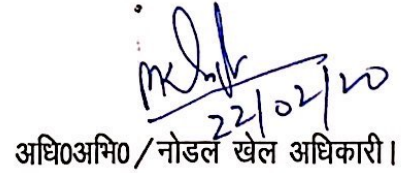 22/02/20
अधि0अभि0/नोडल खेल अधिकारी।